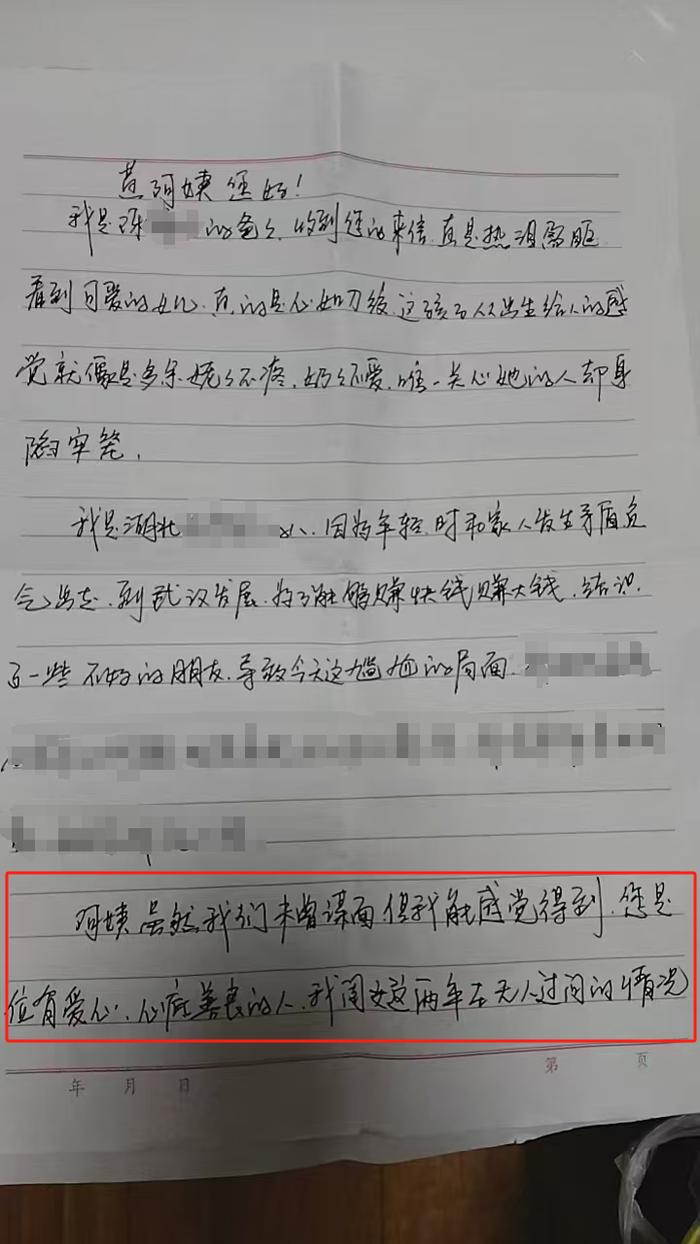 黄阿姨您好!
我是陈 的爸爸.收到您的来信.真是热泪盈眶
看到可爱的女儿.真的是心如刀绞.这孩子从出生给人的感
觉就像是多余.姥姥不疼.奶奶不爱.唯一关心她的人却身
陷牢笼.
我是湖北 人.因为年轻时和家人发生矛盾负
气出走.到武汉发展.为了能够赚快钱赚大钱.结识
了一些不好的朋友.导致今天这尴尬的局面.
阿姨虽然我们未曾谋面但我能感觉得到.您是
位有爱心.心底善良的人.我闺女这两年在无人过问的情况
年 月 日
第 页